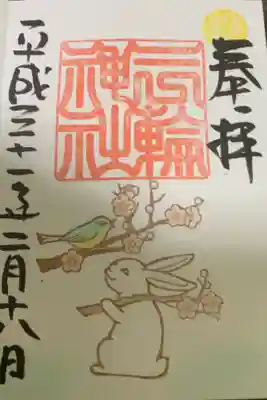 奉拝
三輪神社
平成三十一年二月十八日